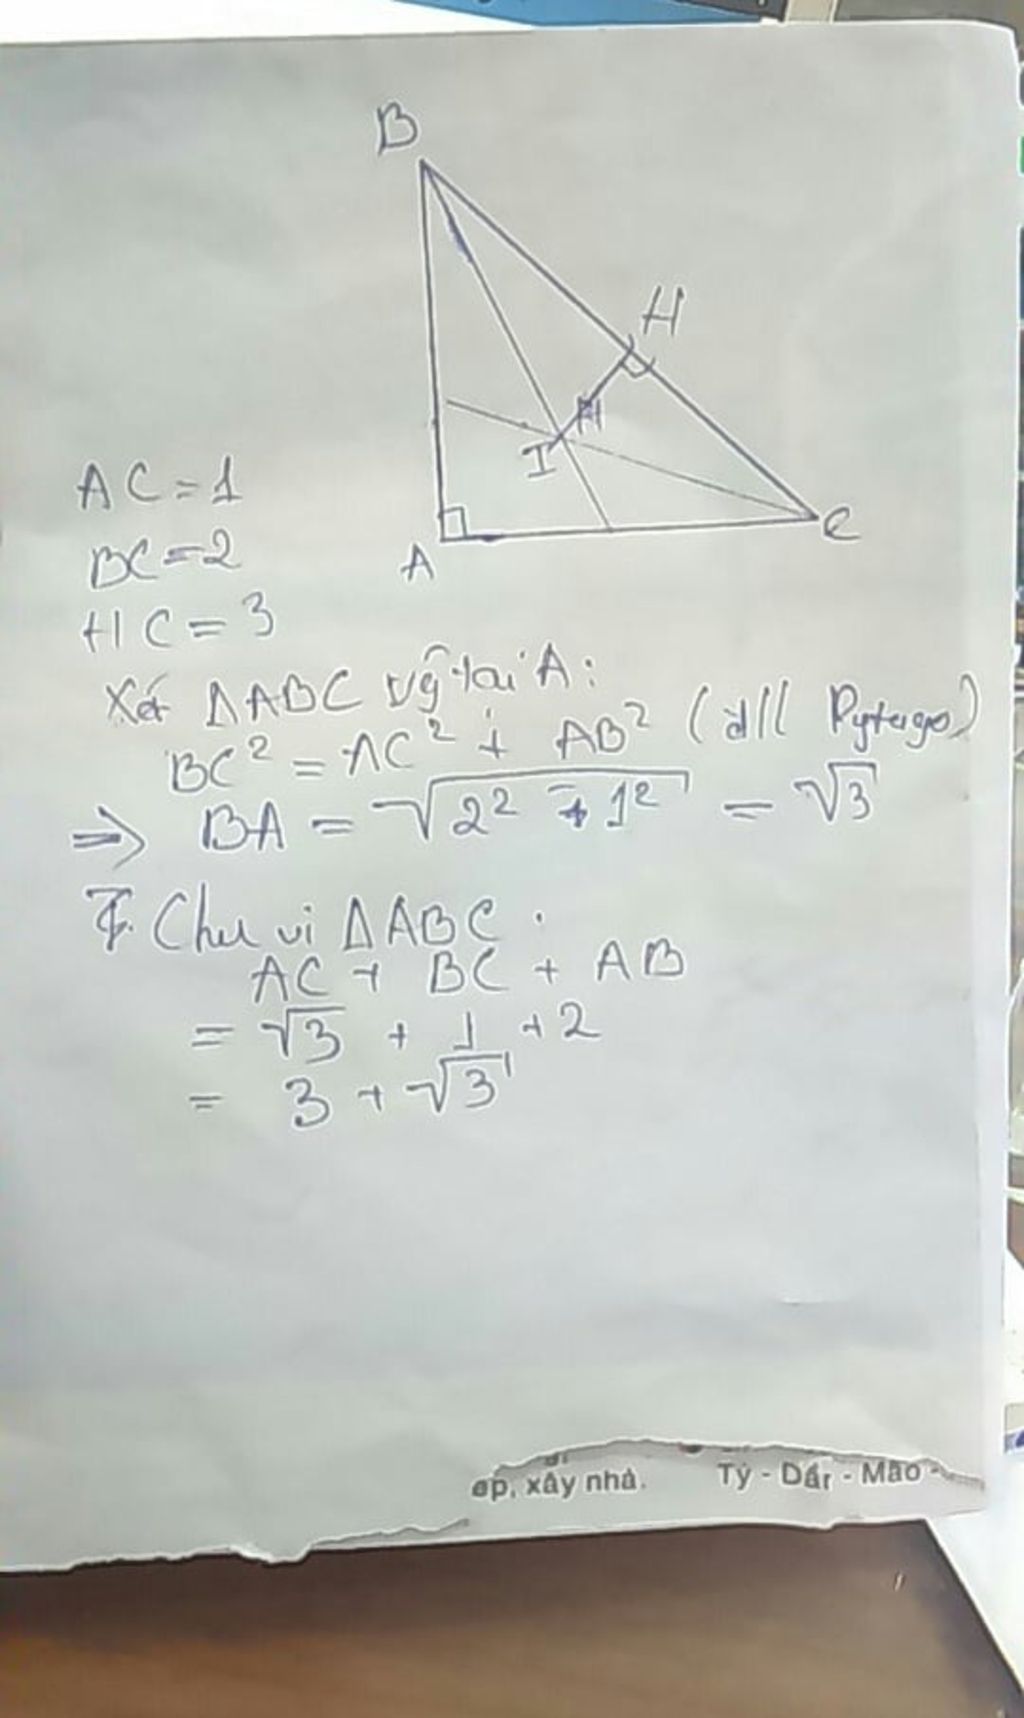 B
H
H
I
C
A
AC=1
BC=2
HC=3
Xét ΔABC vg tại A:
BC² = AC² + AB² (đ/l Pytago)
⇒ BA = √2² - 1² = √3
Chu vi ΔABC :
AC + BC + AB
= √3 + 1 + 2
= 3 + √3
ep, xây nhà. Tý - Dần - Mão -